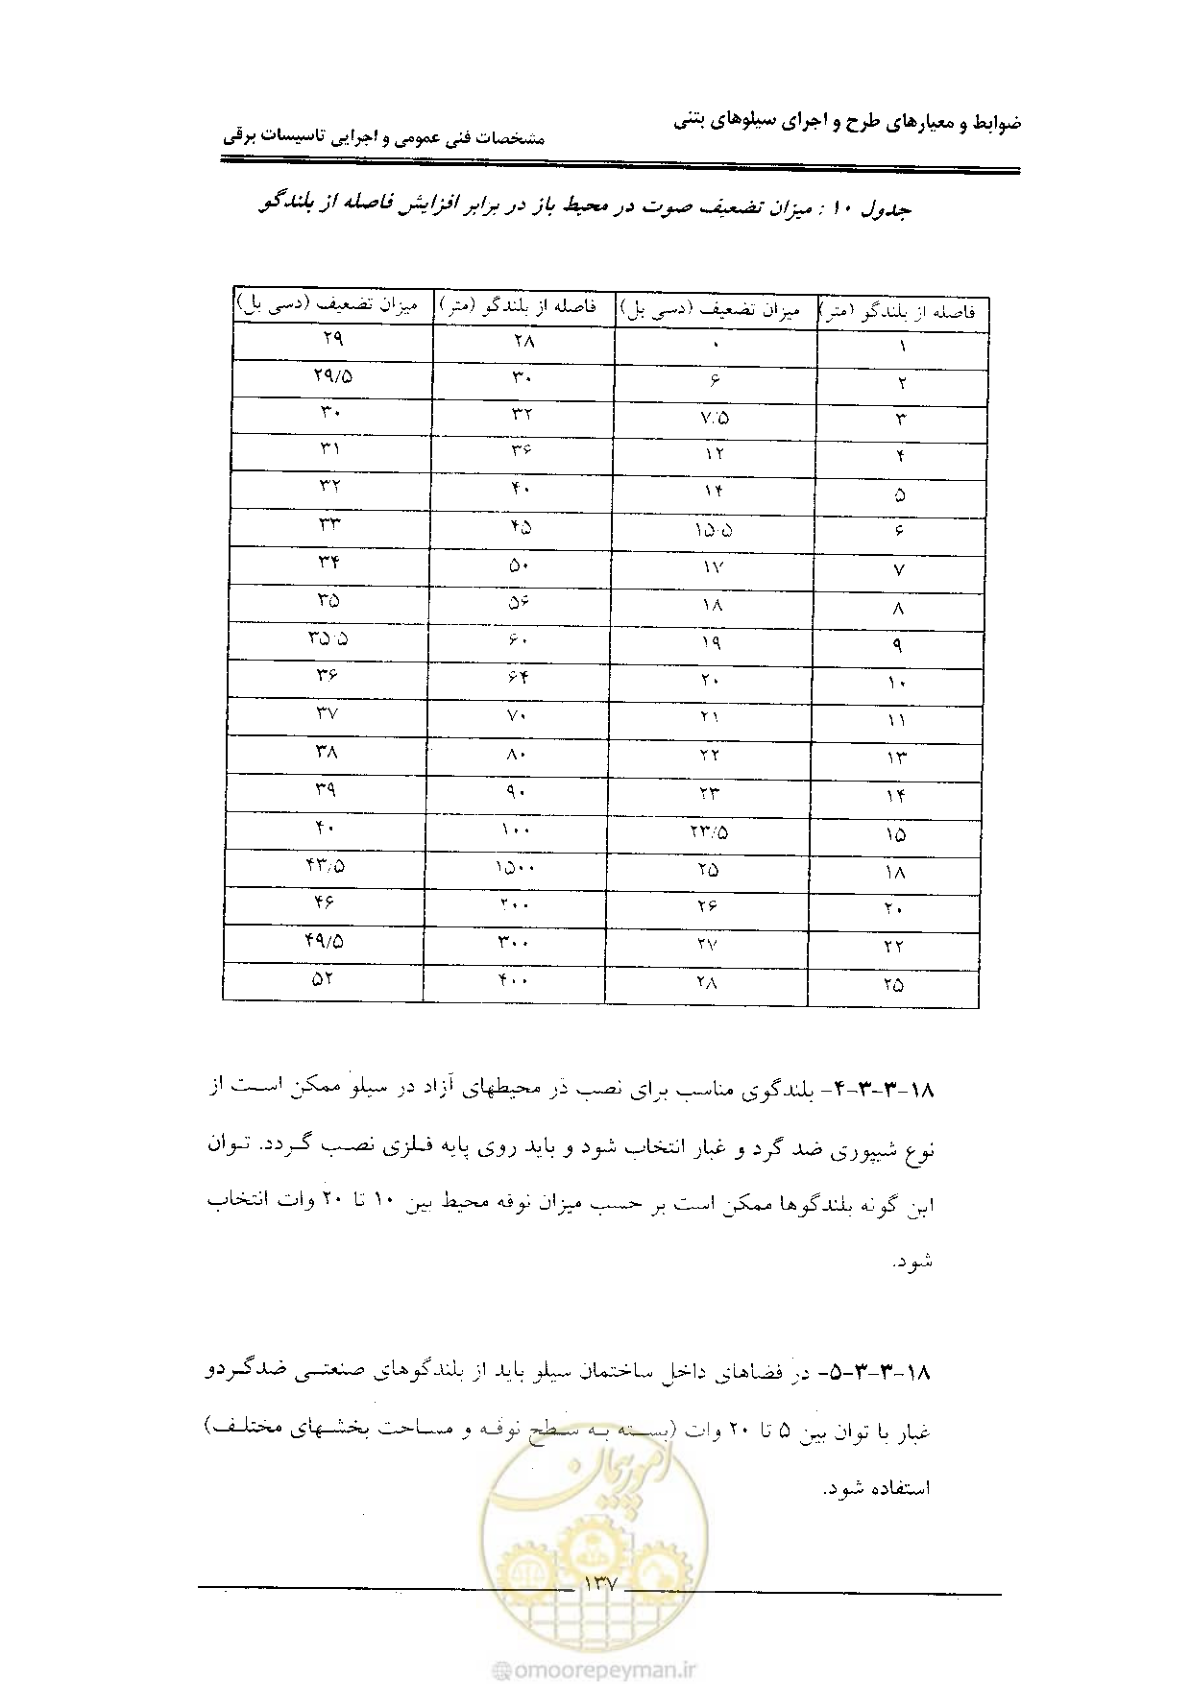 ضوابط و معیارهای طرح و اجرای سیلوهای بتنی
مشخصات فنی عمومی و اجرایی تاسیسات برقی
جدول ۱۰ : میزان تضعیف صوت در محیط باز در برابر افزایش فاصله از بلندگو
فاصله از بلندگو (متر) میزان تضعیف (دسی بل) فاصله از بلندگو (متر) میزان تضعیف (دسی بل)
۱ ۰ ۲۸ ۲۹
۲ ۶ ۳۰ ۲۹/۵
۳ ۷.۵ ۳۲ ۳۰
۴ ۱۲ ۳۶ ۳۱
۵ ۱۴ ۴۰ ۳۲
۶ ۱۵.۵ ۴۵ ۳۳
۷ ۱۷ ۵۰ ۳۴
۸ ۱۸ ۵۶ ۳۵
۹ ۱۹ ۶۰ ۳۵.۵
۱۰ ۲۰ ۶۴ ۳۶
۱۱ ۲۱ ۷۰ ۳۷
۱۳ ۲۲ ۸۰ ۳۸
۱۴ ۲۳ ۹۰ ۳۹
۱۵ ۲۳/۵ ۱۰۰ ۴۰
۱۸ ۲۵ ۱۵۰۰ ۴۳/۵
۲۰ ۲۶ ۲۰۰ ۴۶
۲۲ ۲۷ ۳۰۰ ۴۹/۵
۲۵ ۲۸ ۴۰۰ ۵۲
۱۸-۳-۳-۴- بلندگوی مناسب برای نصب در محیطهای آزاد در سیلو ممکن است از
نوع شیپوری ضد گرد و غبار انتخاب شود و باید روی پایه فلزی نصب گردد. توان
این گونه بلندگوها ممکن است بر حسب میزان نوفه محیط بین ۱۰ تا ۲۰ وات انتخاب
شود.
۱۸-۳-۳-۵- در فضاهای داخل ساختمان سیلو باید از بلندگوهای صنعتی ضدگردو
غبار با توان بین ۵ تا ۲۰ وات (بسته به سطح نوفه و مساحت بخشهای مختلف)
استفاده شود.
امور پیمان
۱۳۷
@omoorepeyman.ir